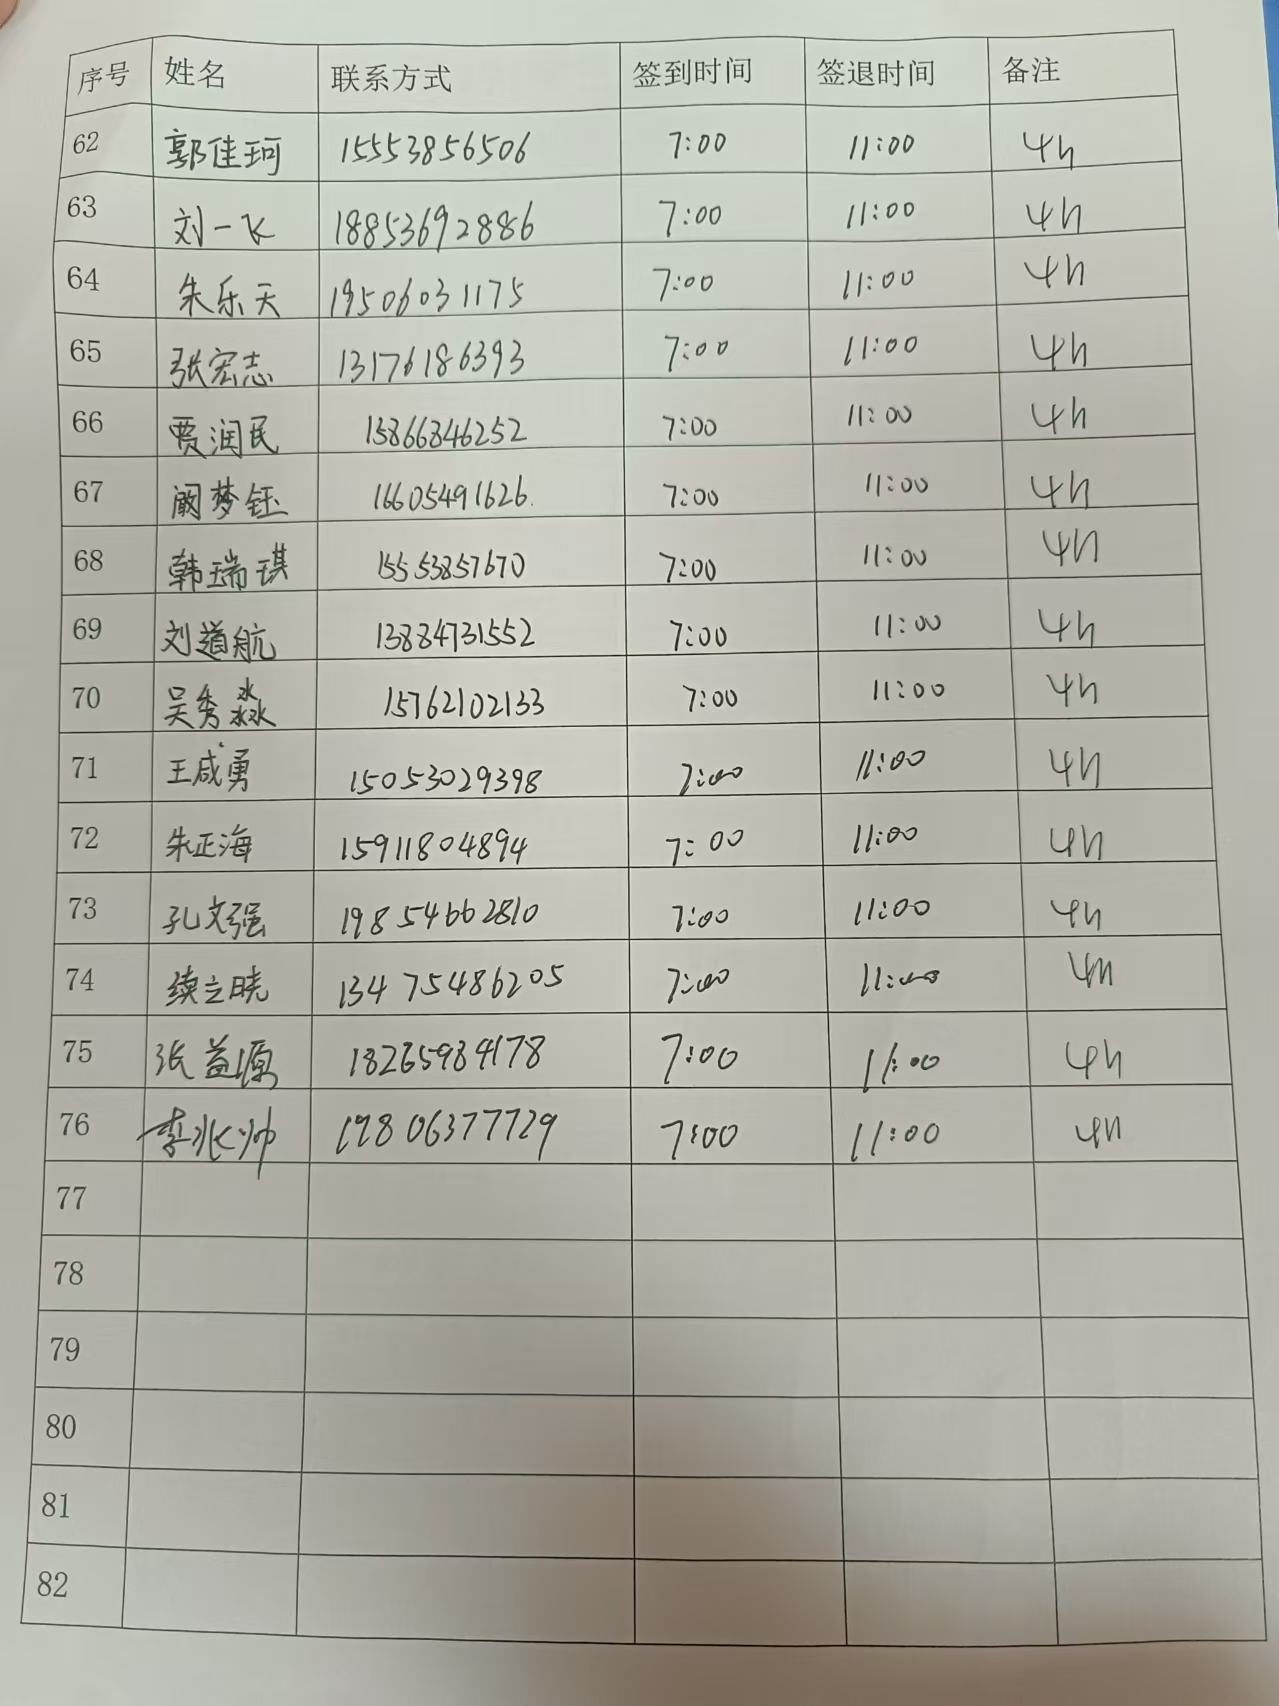 序号 姓名 联系方式 签到时间 签退时间 备注
62 郭佳珂 15553856506 7:00 11:00 4h
63 刘一飞 18853692886 7:00 11:00 4h
64 朱乐天 19506031175 7:00 11:00 4h
65 张宏志 13176186393 7:00 11:00 4h
66 贾润民 15866846252 7:00 11:00 4h
67 阚梦钰 16605491626. 7:00 11:00 4h
68 韩瑞琪 15553857670 7:00 11:00 4h
69 刘道航 13884731552 7:00 11:00 4h
70 吴秀淼 15762102133 7:00 11:00 4h
71 王咸勇 15053029398 7:00 11:00 4h
72 朱正海 15911804894 7:00 11:00 4h
73 孔文强 19854662810 7:00 11:00 4h
74 续之晓 13475486205 7:00 11:00 4h
75 张益源 18265984178 7:00 11:00 4h
76 李兆帅 19806377729 7:00 11:00 4h
77
78
79
80
81
82